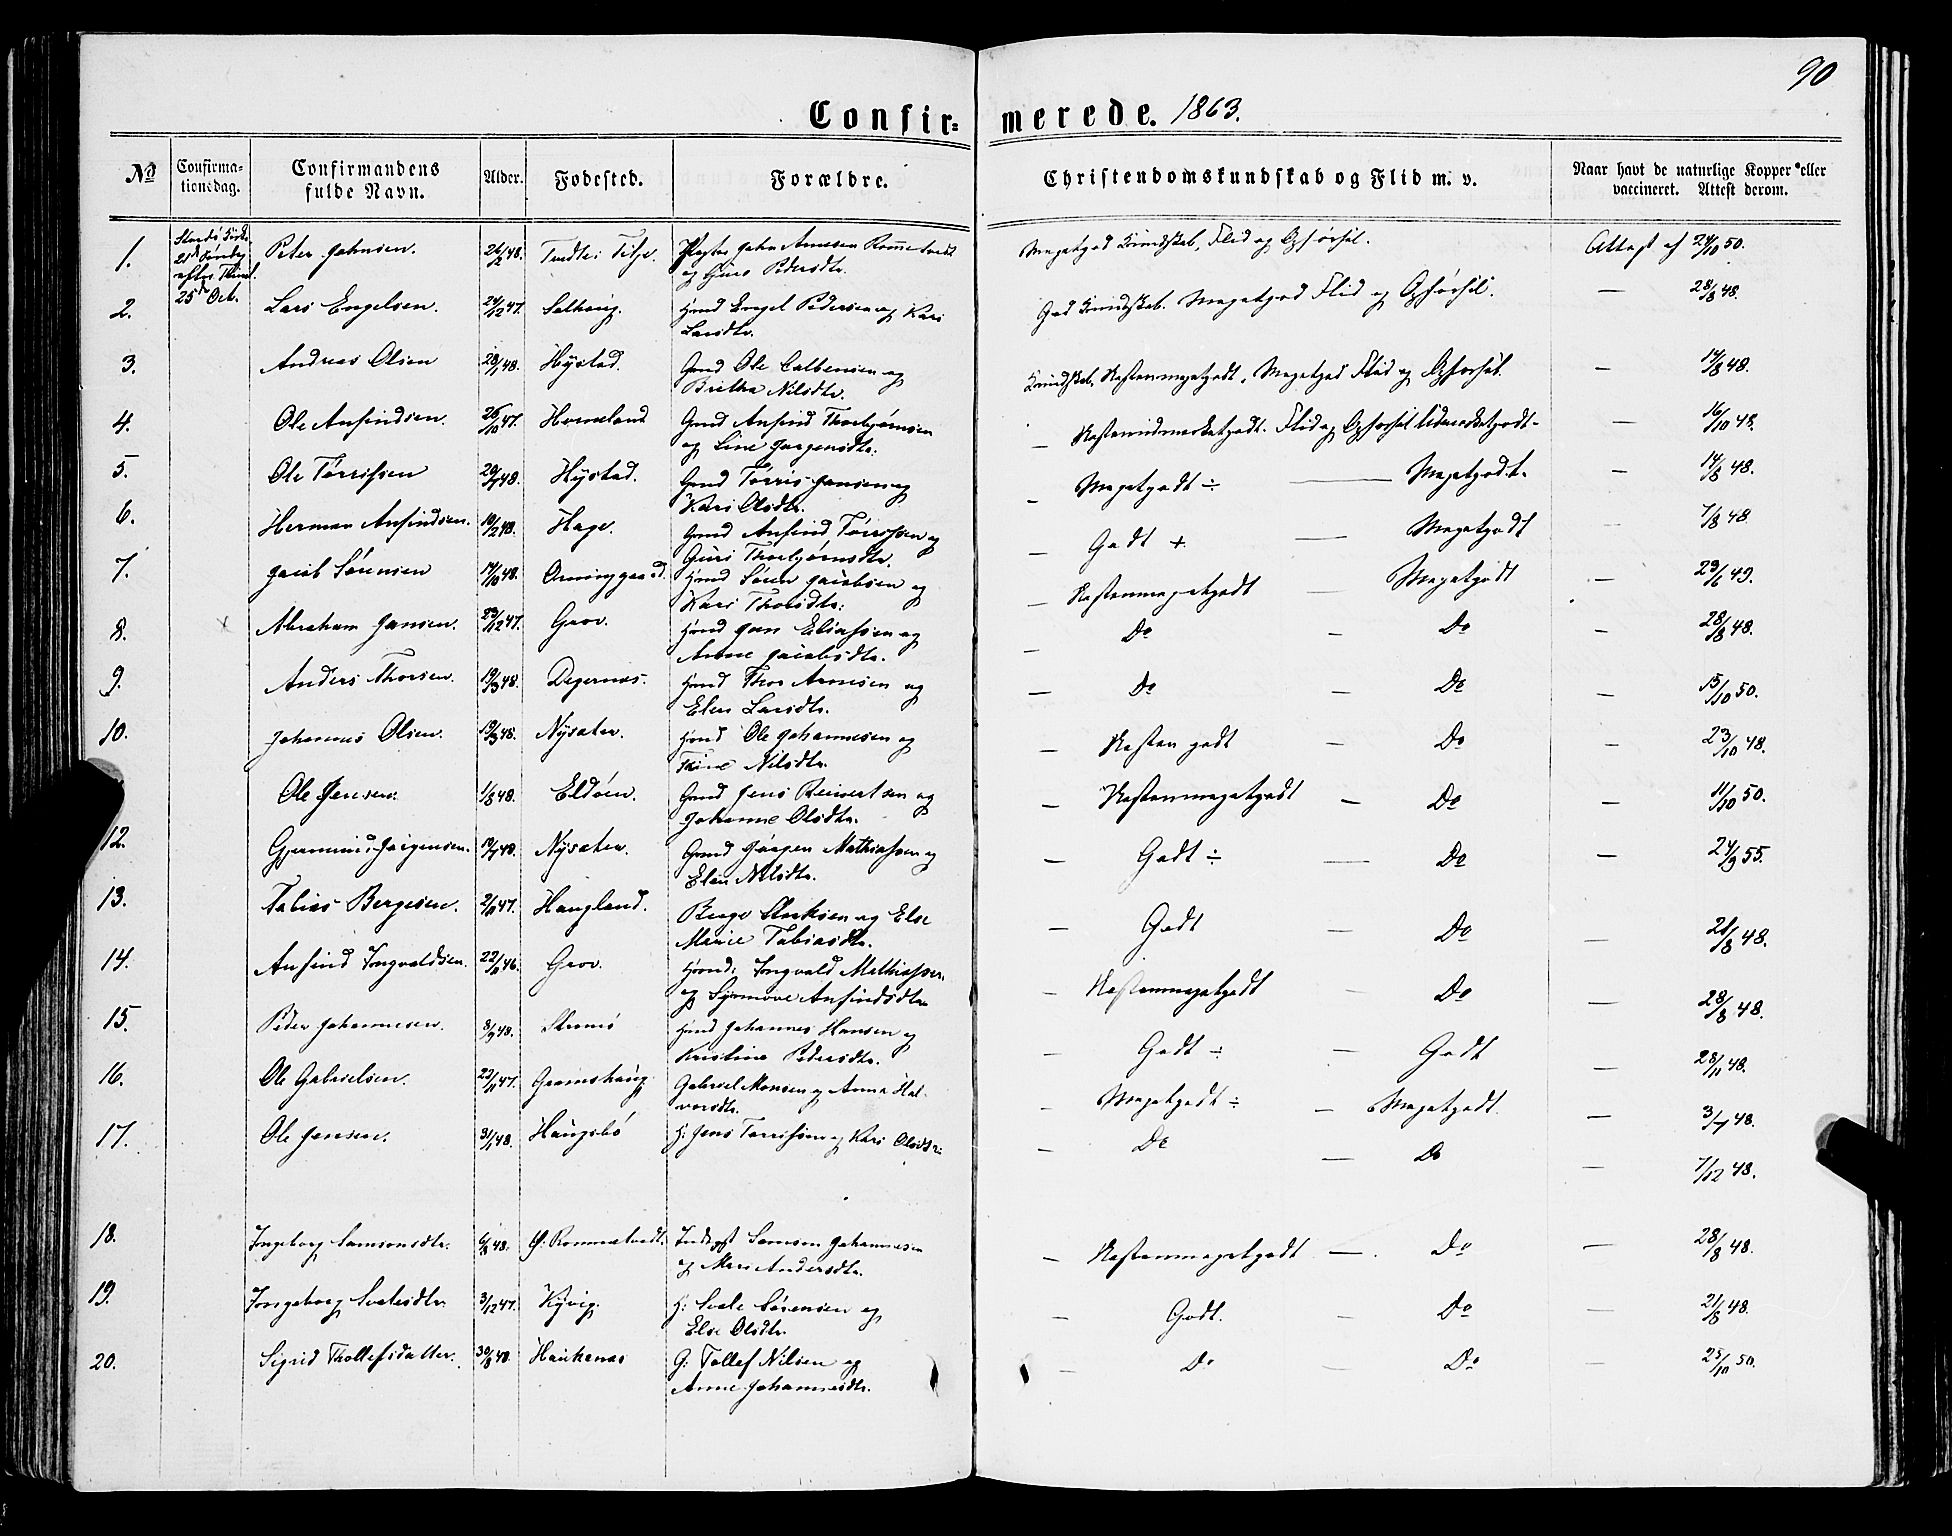 90
Confir= merede. 1863.
No Confirma= Confirmandens Alder. Fødested. Forældre. Christendomskundskab og Flid m. v. Naar havt de naturlige Kopper eller
tionsdag. fulde Navn. vaccineret. Attest derom.
1. 25de Oct. Peter Johnsen. 48. John Arnesen og Guro Pedersdtr. Megetgod Kundskab, Flid og Opførsel. Attest af 24/10 50.
2. Lars Engelsen. 24/12 47. Salhaug. Hmd Engel Pedersen og Kari Larsdtr. God Kundskab. Megetgod Flid og Opførsel. — 28/8 48.
3. Andreas Olsen 48. Hystad. Gmd Ole og Britha Nilsdtr. Kundskab Næstenmegetgodt, Megetgod Flid og Opførsel. — 14/8 48.
4. Ole Anfindsen. 26/10 47. Horneland Gmd Anfind Thorbjørnsen og Line Jørgensdtr. — Flid og Opførsel Udmærketgodt — 16/10 48.
5. Ole Tørrissen 48. Hystad. Gmd Tørris Jansen og Kari Olsdtr. — Megetgodt ÷ — Megetgodt. — 14/8 48.
6. Herman Anfindsen. 48. Hage. Gmd Anfind Tørrissen og Guri Thorbjørnsdtr. — Godt + — Megetgodt — 7/8 48.
7. Jacob Sørensen 48. Hmd Søren Jacobsen og Kari Thorsdtr. — Næstenmegetgodt — Megetgodt — 29/6 49.
8. x Abraham Jansen. 23/12 47. Grov. Hmd Jan Eliassen og Anne Jacobsdtr. — Do — Do — 28/8 48.
9. Anders Thorsen. 19/3 48. Degernes. Hmd Thor Arnesen og Elen Larsdtr. — Do — Do — 15/10 50.
10. Johannes Olsen. 19/3 48. Nysæter. Hmd Ole Johannesen og Nilsdtr. — Næsten godt — Do — 23/10 48.
Ole Jensen. 1/8 48. Eldøen. Gmd Jens Reinertsen og Johanne Olsdtr. — Næstenmegetgodt — Do — 11/10 50.
12. Jørgensen. 48. Nysæter. Gmd Jørgen Mathiassen og Elen Nilsdtr. — Godt ÷ — Do — 24/9 55.
13. Tobias Bergesen. 47. Haugland. Berge og Else Marie Tobiasdtr. — Godt — Do — 21/8 48.
14. Anfind Ingvaldsen. 46. Grov. Hmd: Ingvald Mathiassen og Synnove Anfindsdtr. — Næstenmegetgodt — Do — 28/8 48.
15. Peder Johannesen. 8/9 48. Hmd Johannes Hansen og Kristine Pedersdtr. — Godt ÷ — Godt — 28/11 48.
16. Ole Gabrielsen. 23/11 47. Grønshaug Gabriel Monsen og Anna Hal-vorsdtr. — Megetgodt ÷ — Megetgodt. — 3/7 48.
17. Ole Jensen. 31/1 48. Haugsbø H: Jens Tørrissen og Kari Olsdtr. — Do — Do — 7/12 48.
18. Ingeborg Samsonsdtr. 48. Samson Johannesen og Mari Andersdtr. — Næstenmegetgodt — Do — 28/8 48.
19. Ingeborg Svalesdtr. 3/12 47. Kyvig. H: Svale Sørensen og Else Olsdtr. — Godt. — Do — 21/8 48.
20. Sigrid Thollefsdatter. 30/8 48. Haukenæs G: Tollef Nilsen og Anne Johannesdtr. — Do — Do — 25/10 50.